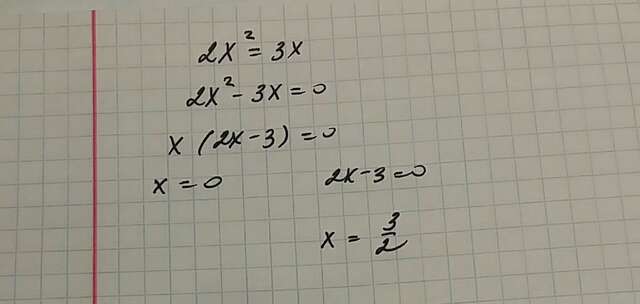 2x² = 3x
2x² - 3x = 0
x (2x - 3) = 0
x = 0 2x - 3 = 0
x = 3/2